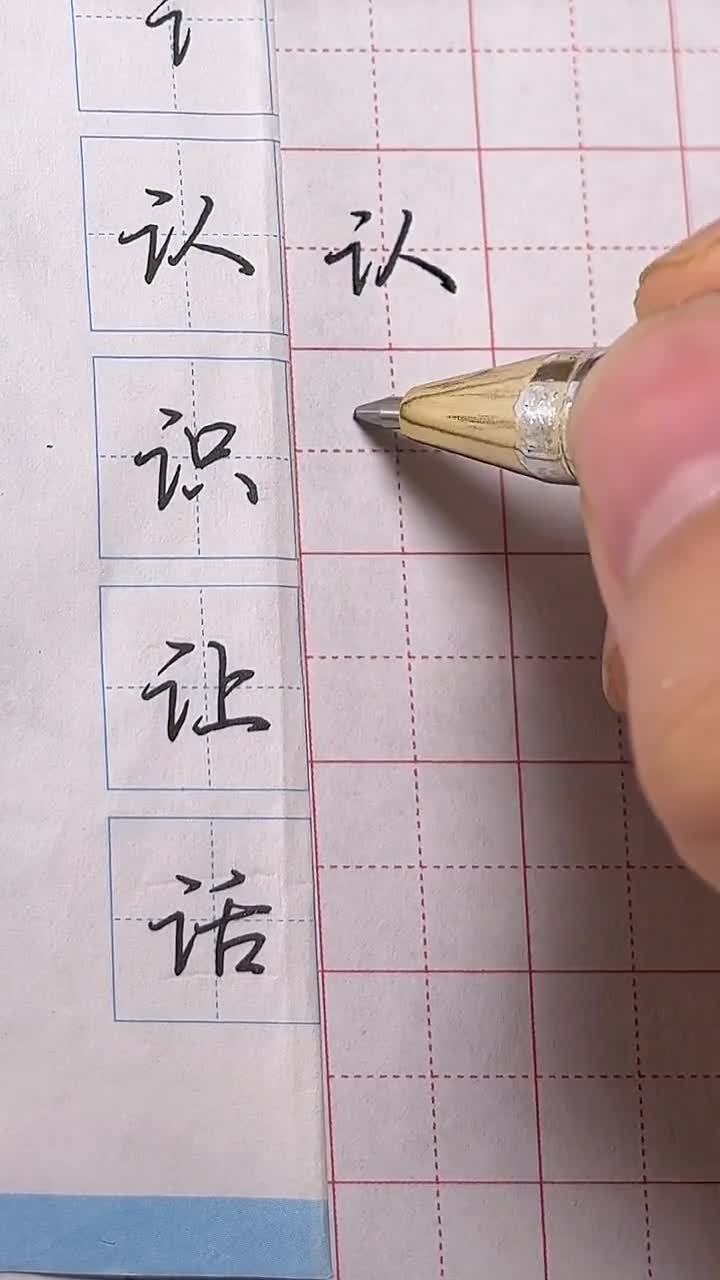 讠
认 认
识
让
话